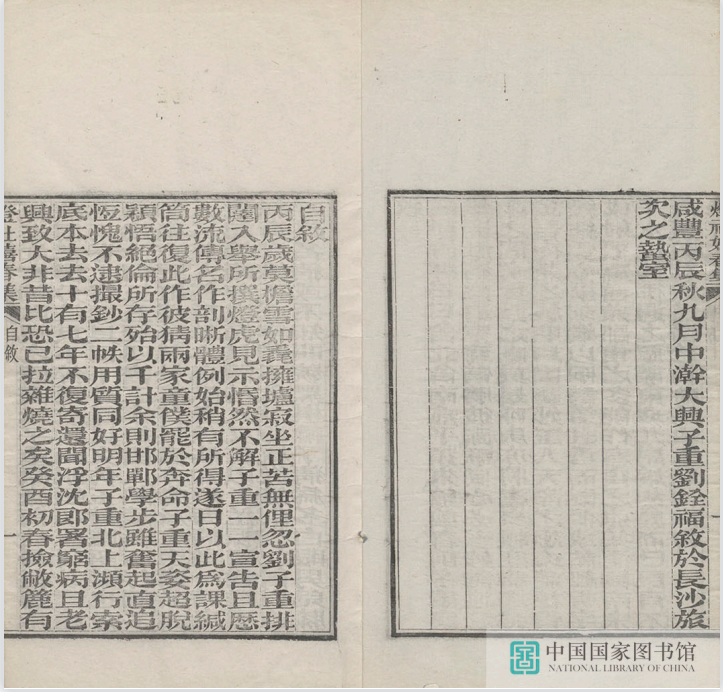 燈社嬉春集
咸豐丙辰秋九月中澣大興子重劉銓福敘於長沙旅
次之蟄室
自敘
丙辰歲莫檐雪如毳擁壚寂坐正苦無俚忽劉子重排
闥入舉所撰燈虎見示惛然不解子重一一宣告且歷
數流傳名作剖晰體例始稍有所得遂日以此爲課緘
筒往復此作彼猜兩家童僕罷於奔命子重天姿超脫
穎悟絕倫所存殆以千計余則邯鄲學步雖奮起直追
恆愧不逮撮鈔二帙用質同好明年子重北上瀕行索
底本去去十有七年不復寄還閒浮沈郎署窮病且老
興致大非昔比恐已拉雜燒之矣癸酉初春撿敝簏有
燈社嬉春集
自敘
一
中国国家图书馆
NATIONAL LIBRARY OF CHINA